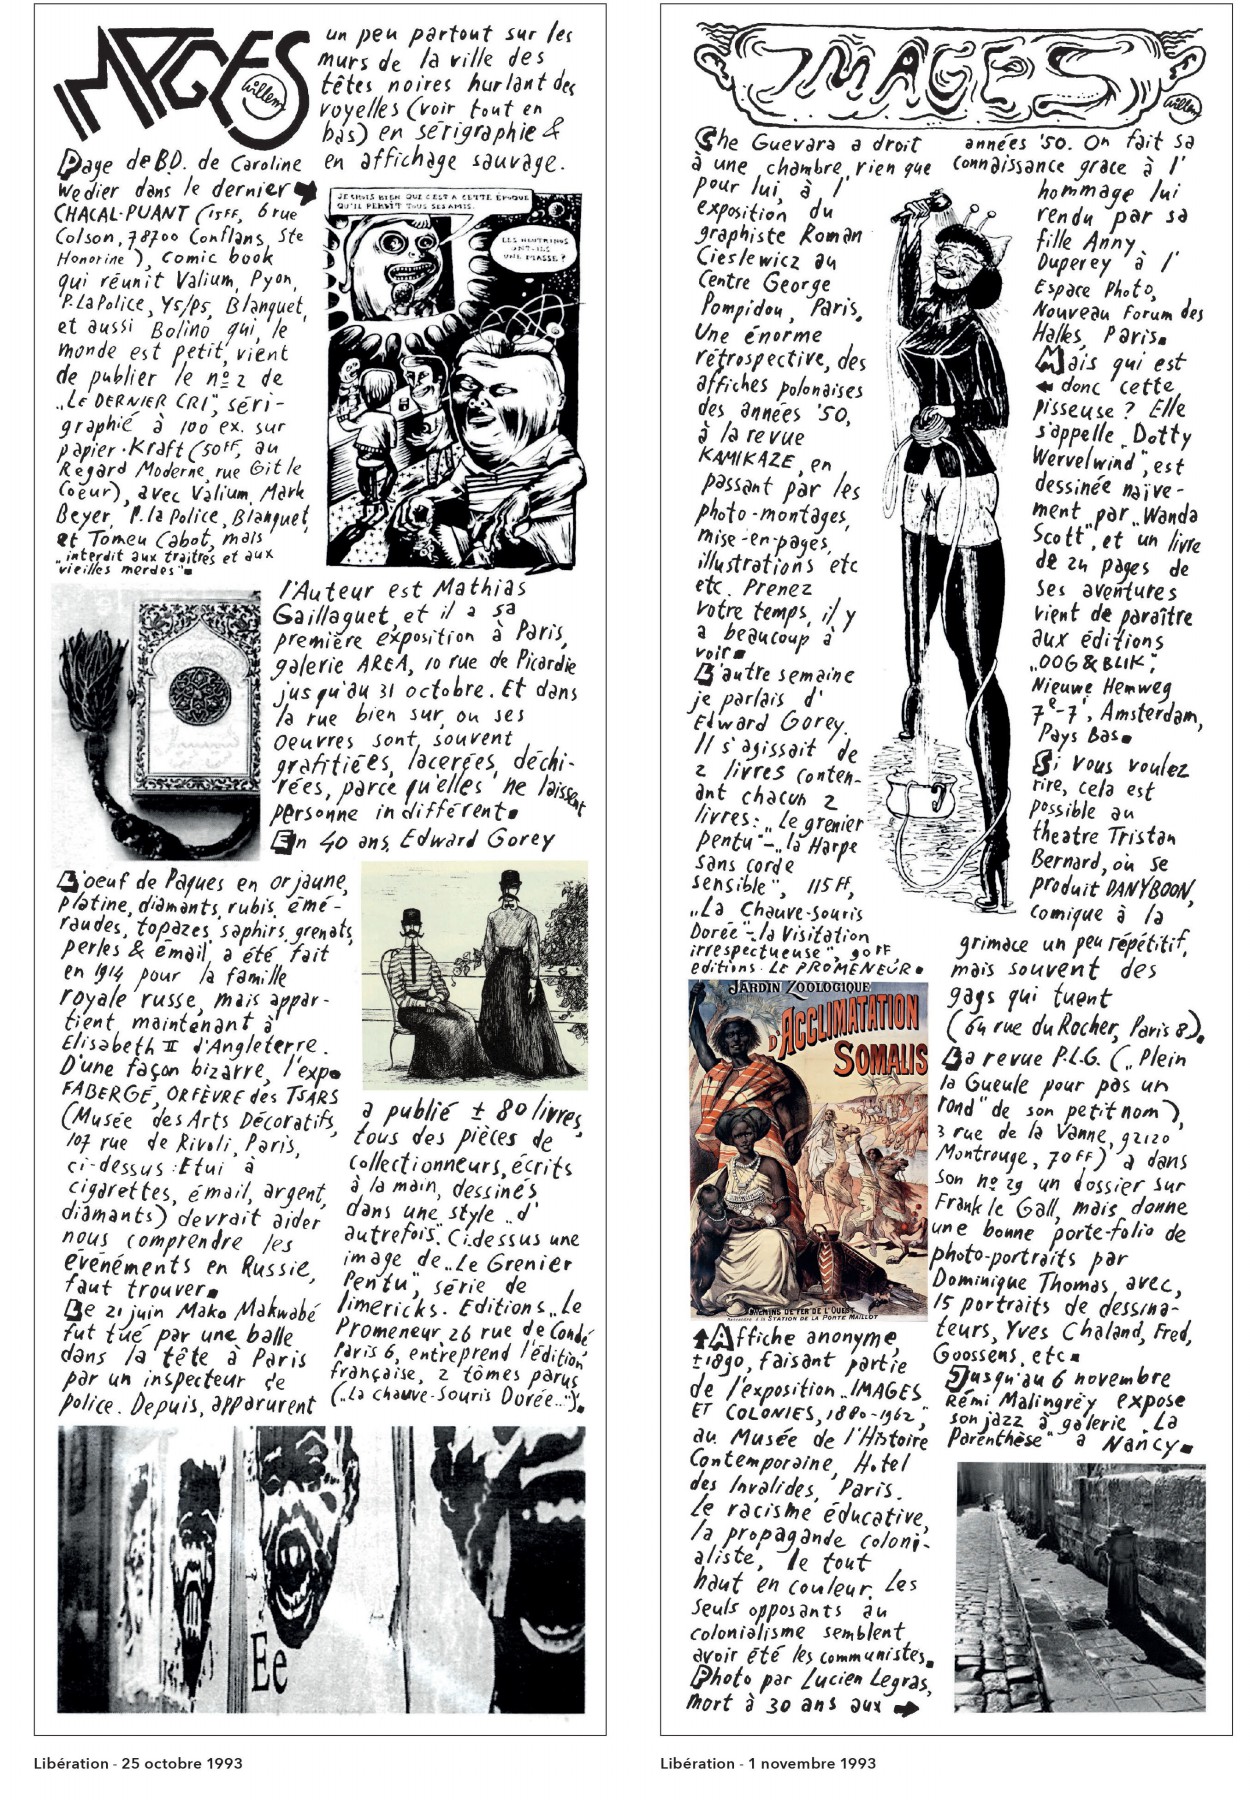 IMAGES
Willem
Page de B.D. de Caroline
Wedier dans le dernier
CHACAL-PUANT (15FF, 6 rue
Colson, 78700 Conflans, Ste
Honorine), comic book
qui réunit Valium, Pyon,
P. La Police, Y5/P5, Blanquet,
et aussi Bolino qui, le
monde est petit, vient
de publier le nº 2 de
„LE DERNIER CRI", séri-
graphié à 100 ex. sur
papier Kraft (50FF, au
Regard Moderne, rue Git le
Coeur), avec Valium, Mark
Beyer, P. la Police, Blanquet,
et Tomeu Cabot, mais
„interdit aux traitres et aux
vieilles merdes".
L'oeuf de Paques en or jaune,
platine, diamants, rubis, émé-
raudes, topazes, saphirs, grenats,
perles & émail, a été fait
en 1914 pour la famille
royale russe, mais appar-
tient maintenant à
Elisabeth II d'Angleterre.
D'une façon bizarre, l'expo
FABERGÉ, ORFÈVRE des TSARS
(Musée des Arts Décoratifs,
107 rue de Rivoli, Paris,
ci-dessus: Etui à
cigarettes, émail, argent,
diamants) devrait aider
nous comprendre les
événéments en Russie,
faut trouver.
Le 21 juin Mako Makwabé
fut tué par une balle
dans la tête à Paris
par un inspecteur de
police. Depuis, apparurent
un peu partout sur les
murs de la ville des
têtes noires hurlant des
voyelles (voir tout en
bas) en sérigraphie &
en affichage sauvage.
JE SAIS BIEN QUE C'EST A CETTE ÉPOQUE
QU'IL PERDIT TOUS SES AMIS.
LES NEUTRINOS
ONT-ILS
UNE MASSE?
l'Auteur est Mathias
Gaillaguet, et il a sa
première exposition à Paris,
galerie AREA, 10 rue de Picardie
jusqu'au 31 octobre. Et dans
la rue bien sur, ou ses
oeuvres sont souvent
grafitiées, lacerées, déchi-
rées, parce qu'elles ne laissent
personne indifférent.
En 40 ans, Edward Gorey
a publié ± 80 livres,
tous des pièces de
collectionneurs, écrits
à la main, dessinés
dans une style „d'
autrefois". Ci.dessus une
image de „Le Grenier
Pentu", série de
limericks. Editions „Le
Promeneur, 26 rue de Condé
Paris 6, entreprend l'édition
française, 2 tômes parus
(„La Chauve-Souris Dorée...").
Ee
Libération - 25 octobre 1993
IMAGES
Willem
Che Guevara a droit
à une chambre, rien que
pour lui, à l'
exposition du
graphiste Roman
Cieslewicz au
Centre George
Pompidou, Paris.
Une énorme
rétrospective, des
affiches polonaises
des années '50,
à la revue
KAMIKAZE, en
passant par les
photo-montages,
mise-en-pages,
illustrations etc
etc. Prenez
votre temps, il y
a beaucoup à
voir.
L'autre semaine
je parlais d'
Edward Gorey.
Il s'agissait de
2 livres conten-
ant chacun 2
livres: „Le grenier
pentu"-„la Harpe
sans corde
sensible", 115 FF,
„La Chauve-Souris
Dorée"-„la Visitation
irrespectueuse", 90 FF,
éditions LE PROMENEUR.
JARDIN ZOOLOGIQUE
D'ACCLIMATATION
SOMALIS
CHEMINS DE FER DE L'OUEST
Descendre à la STATION DE LA PORTE MAILLOT
Affiche anonyme,
±1890, faisant partie
de l'exposition „IMAGES
ET COLONIES, 1880-1962",
au Musée de l'Histoire
Contemporaine, Hotel
des Invalides, Paris.
Le racisme éducative,
la propagande coloni-
aliste, le tout
haut en couleur. Les
seuls opposants au
colonialisme semblent
avoir été les communistes.
Photo par Lucien Legras,
mort à 30 ans aux
années '50. On fait sa
connaissance grace à l'
hommage lui
rendu par sa
fille Anny
Duperey à l'
Espace Photo,
Nouveau Forum des
Halles, Paris.
Mais qui est
donc cette
pisseuse? Elle
s'appelle „Dotty
Wervelwind", est
dessinée naïve-
ment par „Wanda
Scott", et un livre
de 24 pages de
ses aventures
vient de paraître
aux éditions
„OOG & BLIK",
Nieuwe Hemweg
7e-7', Amsterdam,
Pays Bas.
Si vous voulez
rire, cela est
possible au
theatre Tristan
Bernard, où se
produit DANY BOON,
comique à la
grimace un peu répétitif,
mais souvent des
gags qui tuent
(64 rue du Rocher, Paris 8).
La revue P.L.G. („Plein
la Gueule pour pas un
rond" de son petit nom),
3 rue de la Vanne, 92120
Montrouge, 70 FF) a dans
son nº 29 un dossier sur
Frank le Gall, mais donne
une bonne porte-folio de
photo-portraits par
Dominique Thomas, avec,
15 portraits de dessina-
teurs, Yves Chaland, Fred,
Goossens, etc.
Jusqu'au 6 novembre
Rémi Malingrëy expose
son jazz à galerie „La
Parenthèse" à Nancy.
Libération - 1 novembre 1993